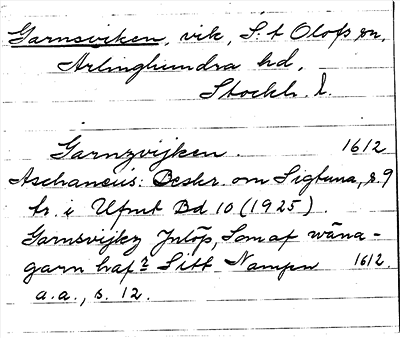 Garnsviken, vik, S:t Olofs sn,
Arlinghundra hd,
Stockh. l.
Garnzvijken. 1612
Aschaneus: Beskr. om Sigtuna, s. 9
tr. i Ufmt Bd 10 (1925).
Garnsvijkz Jnlöp, Som af wäna-
garn haf? Sitt Nampn 1612.
a.a., s. 12.